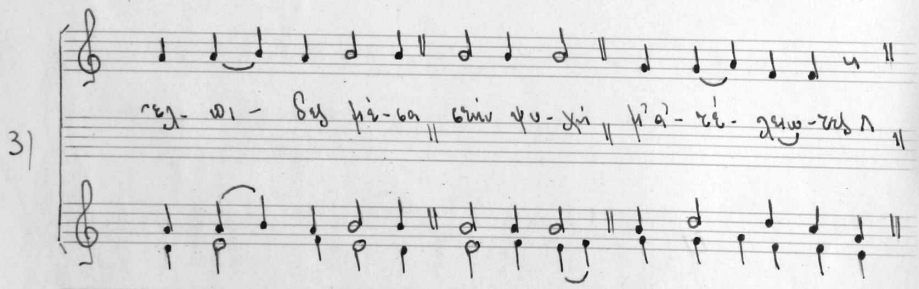 3)
ελ-πι-δες μέ-σα στήν ψυ-χή μ'ἀ-τέ-λειω-τες